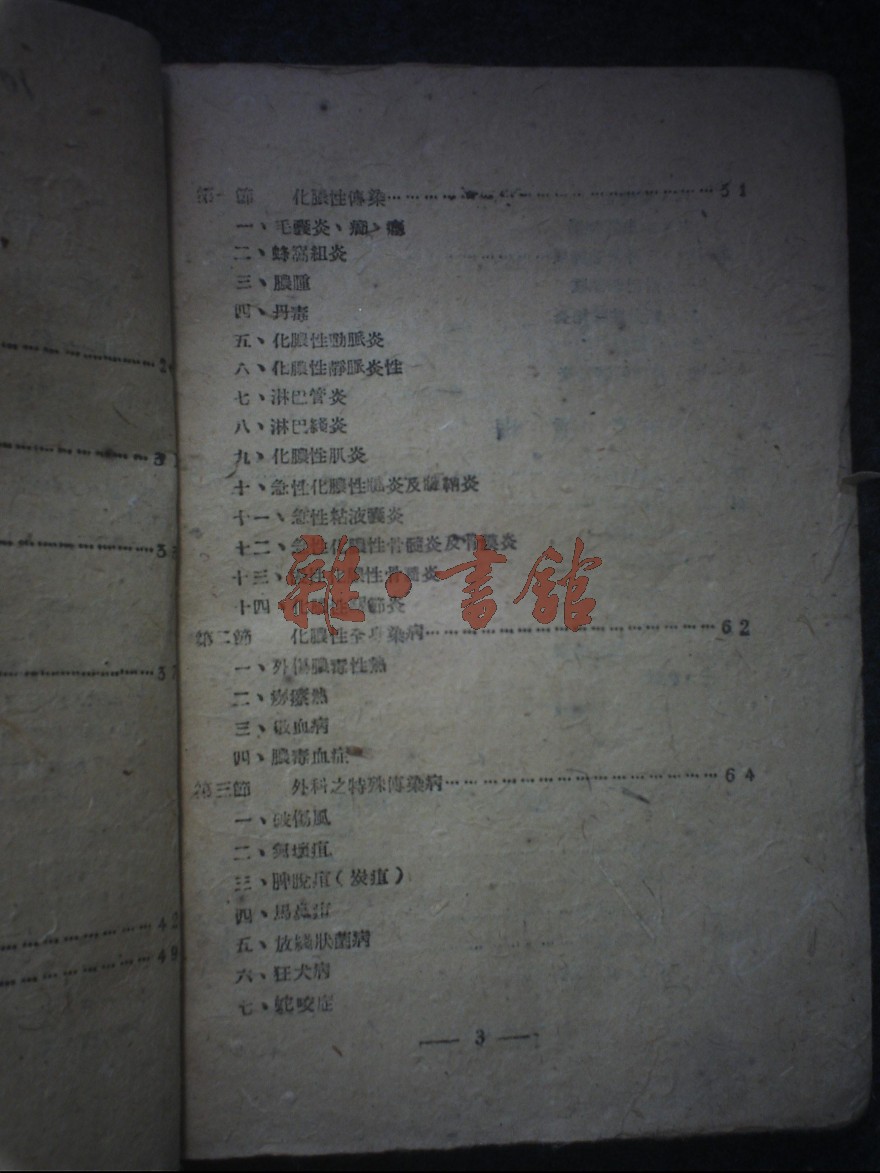 第一節 化膿性傳染…………………………51
一、毛囊炎、癤、癰
二、蜂窩組炎
三、膿腫
四、丹毒
五、化膿性動脈炎
六、化膿性靜脈炎性
七、淋巴管炎
八、淋巴綫炎
九、化膿性肌炎
十、急性化膿性腱炎及腱鞘炎
十一、急性粘液囊炎
十二、急性化膿性骨髓炎及骨膜炎
十三、性化膿性骨髓炎
十四、化膿性關節炎
第二節 化膿性全身染病…………………………62
一、外傷膿毒性熱
二、療熱
三、敗血病
四、膿毒血症
第三節 外科之特殊傳染病…………………………64
一、破傷風
二、氣壞疽
三、脾脫疽(炭疽)
四、馬鼻疽
五、放綫狀菌病
六、狂犬病
七、蛇咬症
— 3 —
雜·書館
42
49